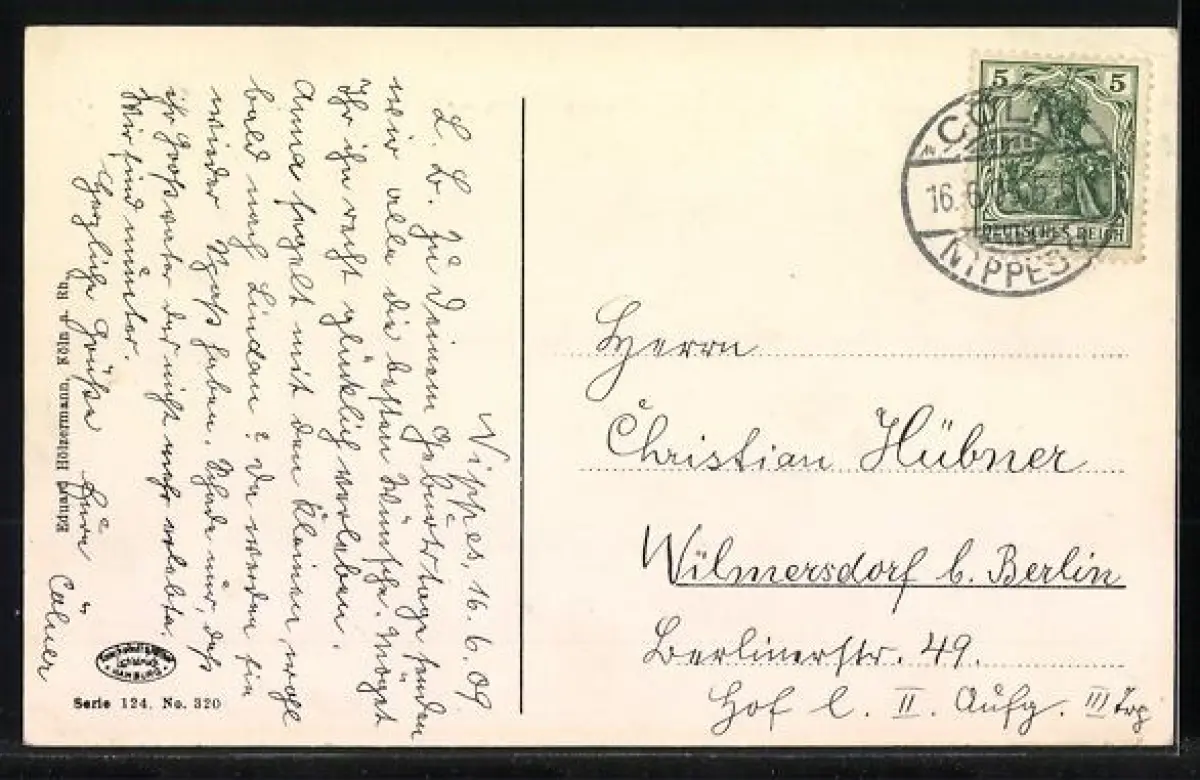 Nippes, 16. 6. 09
L. B. Zu Deinem Geburtstage senden
wir alle die besten Wünsche. Möget
Ihr ihn recht glücklich verleben.
Anna segelt mit den Kleinen wohl
bald nach Lindau? Da werden sie
wieder Spaß haben. Schade nur, daß
ihr Großvater das nicht mehr erlebte.
Wir sind munter.
Herzliche Grüße Eure Cölner
Eduard Hölzermann, Köln a. Rh.
HAMBURG
Serie 124. No. 320
5 5
DEUTSCHES REICH
CÖLN
16.6.
NIPPES
Herrn
Christian Hübner
Wilmersdorf b. Berlin
Berlinerstr. 49.
Hof l. II. Aufg. III Trp